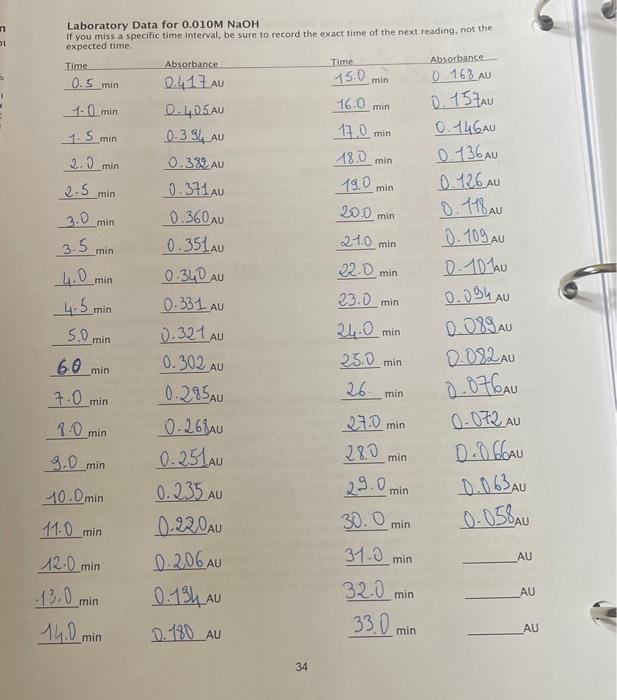 Laboratory Data for 0.010M NaOH
If you miss a specific time interval, be sure to record the exact time of the next reading, not the
expected time.
Time Absorbance Time Absorbance
0.5 min 0.417 AU 15.0 min 0.168 AU
1.0 min 0.405 AU 16.0 min 0.157 AU
1.5 min 0.394 AU 17.0 min 0.146 AU
2.0 min 0.382 AU 18.0 min 0.136 AU
2.5 min 0.371 AU 19.0 min 0.126 AU
3.0 min 0.360 AU 20.0 min 0.118 AU
3.5 min 0.351 AU 21.0 min 0.109 AU
4.0 min 0.340 AU 22.0 min 0.101 AU
4.5 min 0.331 AU 23.0 min 0.094 AU
5.0 min 0.321 AU 24.0 min 0.089 AU
6.0 min 0.302 AU 25.0 min 0.082 AU
7.0 min 0.285 AU 26. min 0.076 AU
8.0 min 0.268 AU 27.0 min 0.072 AU
9.0 min 0.251 AU 28.0 min 0.066 AU
10.0 min 0.235 AU 29.0 min 0.063 AU
11.0 min 0.220 AU 30.0 min 0.058 AU
12.0 min 0.206 AU 31.0 min AU
13.0 min 0.194 AU 32.0 min AU
14.0 min 0.180 AU 33.0 min AU
34